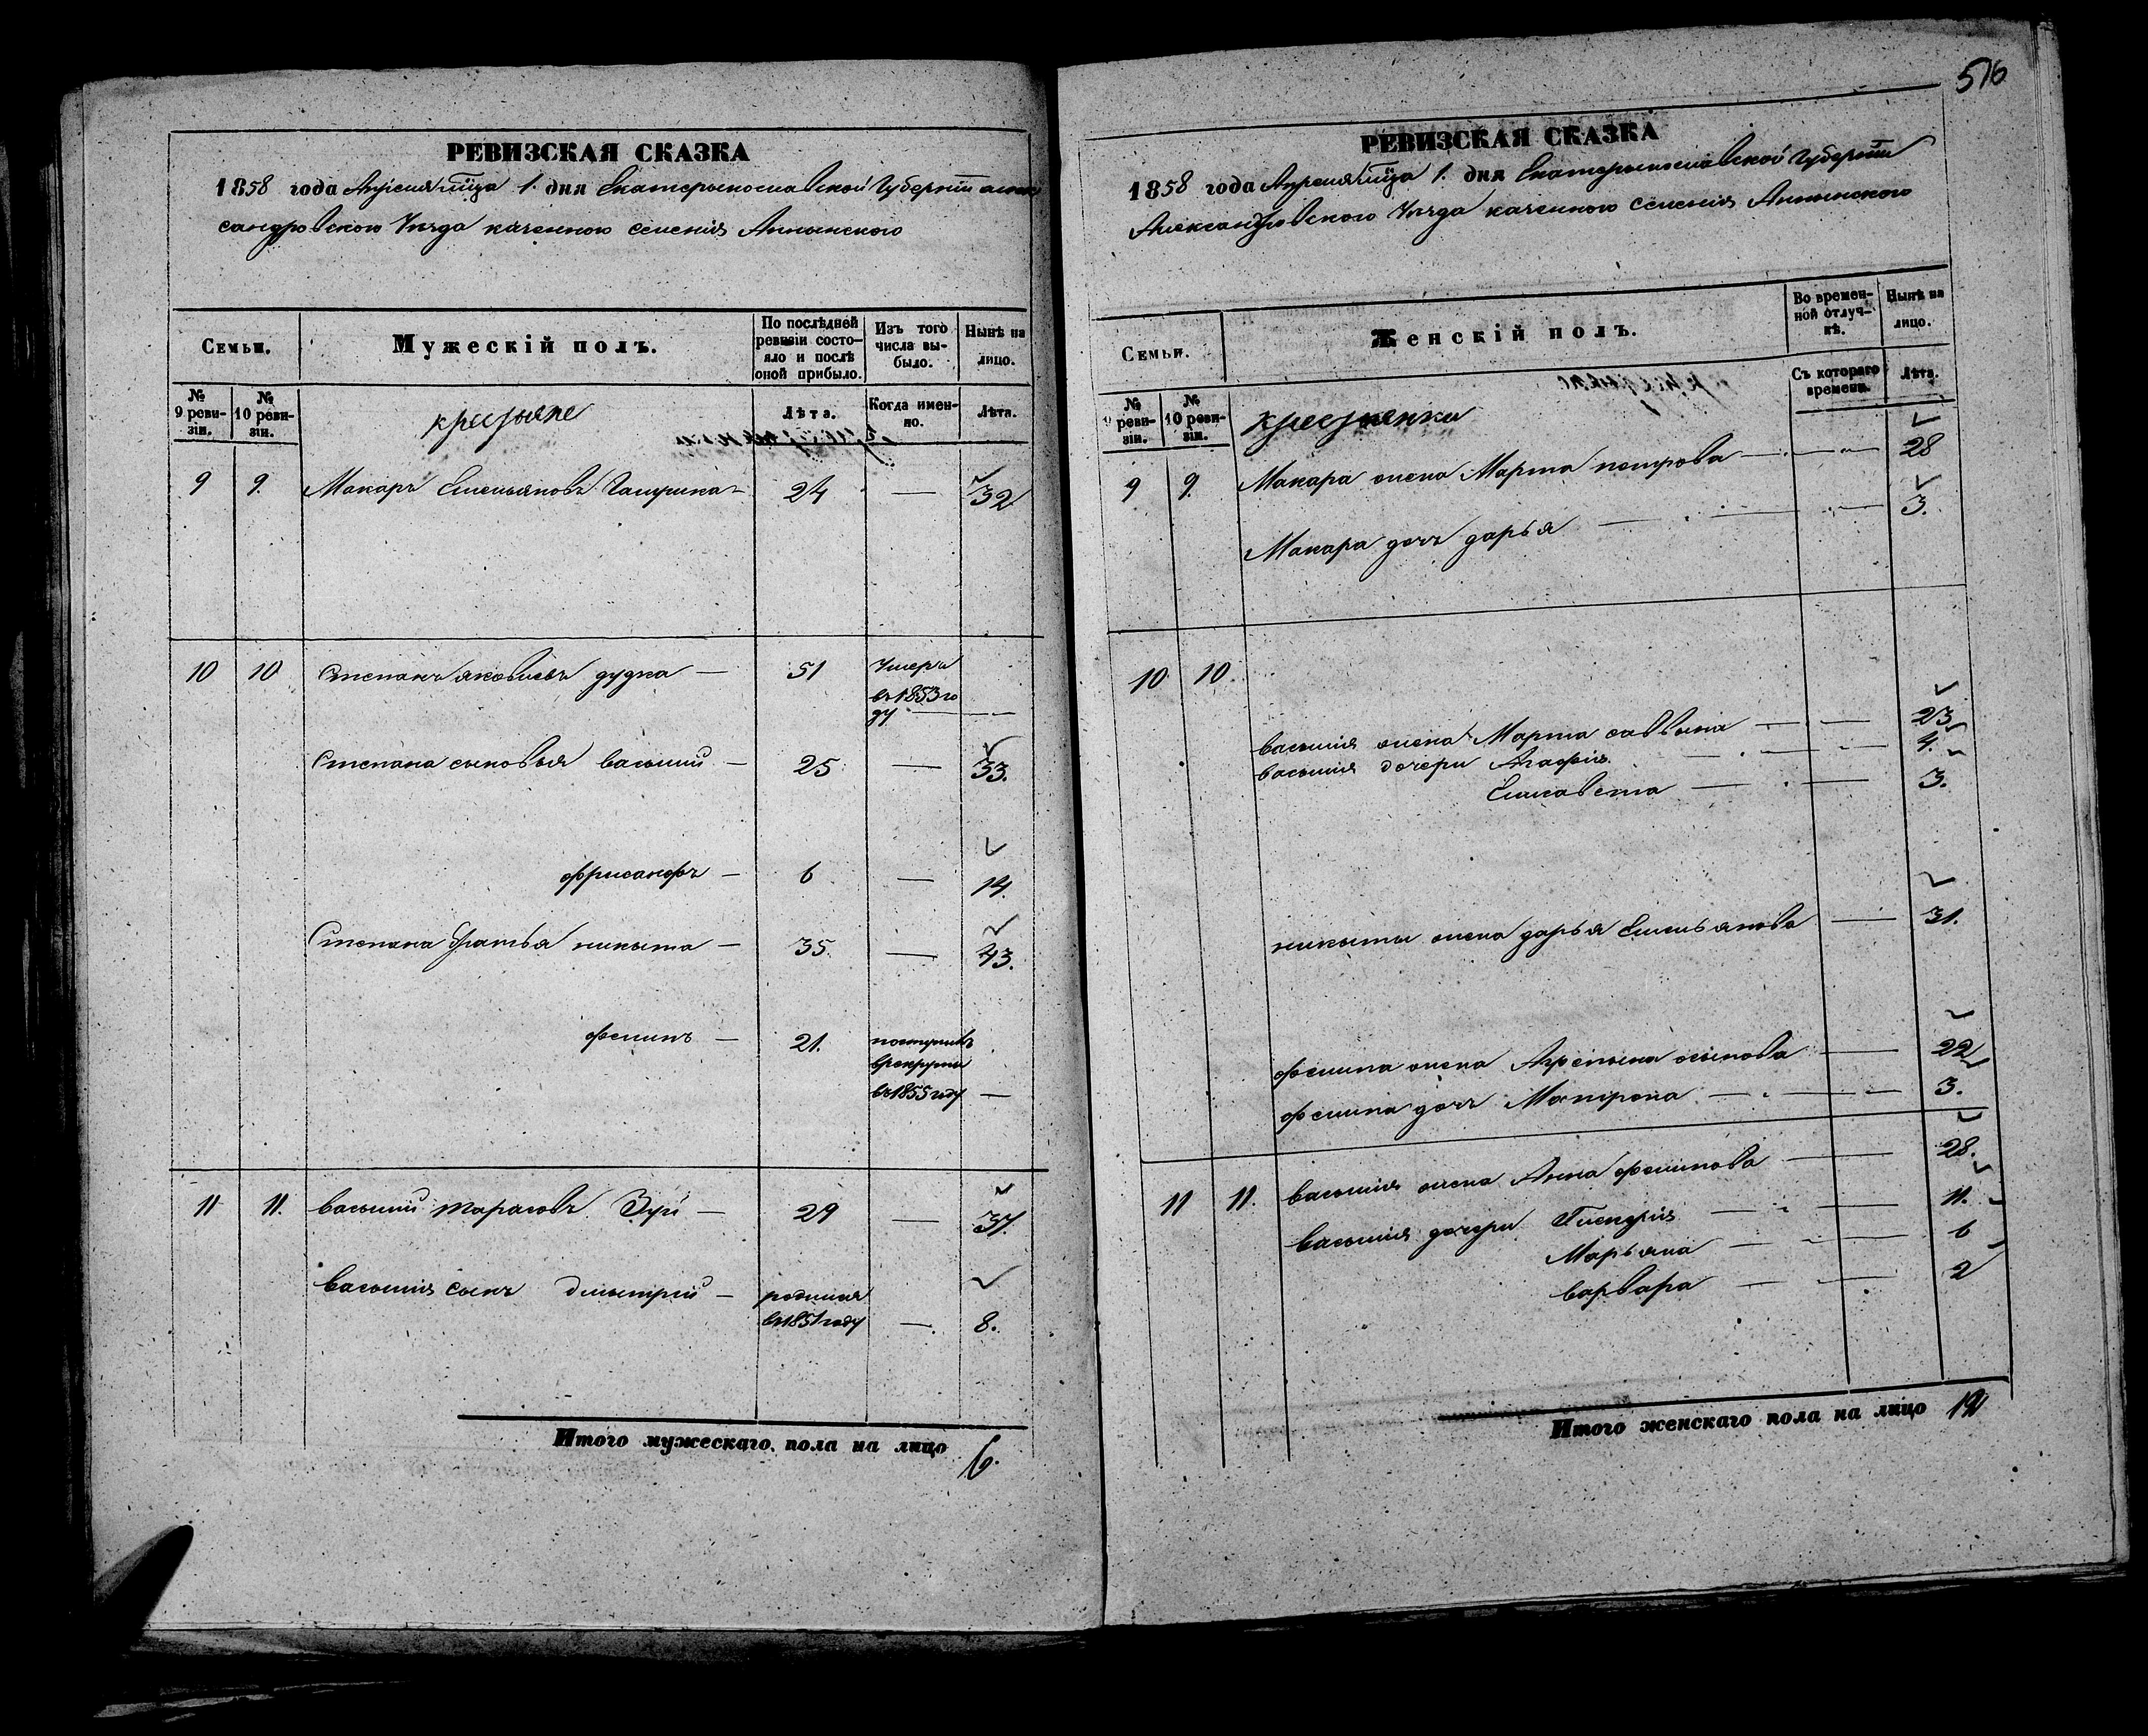 РЕВИЗСКАЯ СКАЗКА
1858 года Апреля мца 1. дня Екатерынославской Губернии алек
сандровского Уезда казенного селения Аннынского
Семьи.
Мужескій полъ.
По послѣдней ревизіи состояло и послѣ оной прибыло.
Изъ того числа выбыло.
Нынѣ на лицо.
№ 9 ревизіи.
№ 10 ревизіи.
крестяне
Лѣта.
Когда именно.
Лѣта.
9 9. Макаръ Емельяновъ 24 — 32
10 10 Степанъ яковлевъ дудка — 51 Умеръ
въ 1853 го
ду — —
Степана сыновья василий — 25 — 33.
фрисанфъ — 6 — 14.
Степана братья никыта — 35. — 43.
филипъ — 21. поступилъ
врекруты
въ 1855 году —
11 11. василий тарасовъ Зуй — 29 — 37.
василия сынъ дмытрий — родился
въ 1851 году — 8.
Итого мужескаго пола на лицо 6.
516
РЕВИЗСКАЯ СКАЗКА
1858 года Апреля мца 1. дня Екатерынославской Губернии
Александровского Уезда казенного селения Аннынского
Семьи.
Женскій полъ.
Во временной отлучкѣ.
Нынѣ на лицо.
№ 9 ревизіи.
№ 10 ревизіи.
крестянки
Съ котораго времени.
Лѣта.
9 9. Макара жена Марта петрова — — 28
Макара дочъ дарья — — 3.
10 10.
василия жена Марта саввына — — 23
василия дочери Агафия — — 4.
Елисавета — — 3.
никыты жена дарья Емельянова — 31.
филипа жена Агрепына осыпова — 22
филипа дочъ Мотрона — — 3.
11 11. василия жена Анна филипова — 28.
василия дочери Гликерия — — 11.
Марьяна — — 6
варвара — — 2
Итого женскаго пола на лицо 12